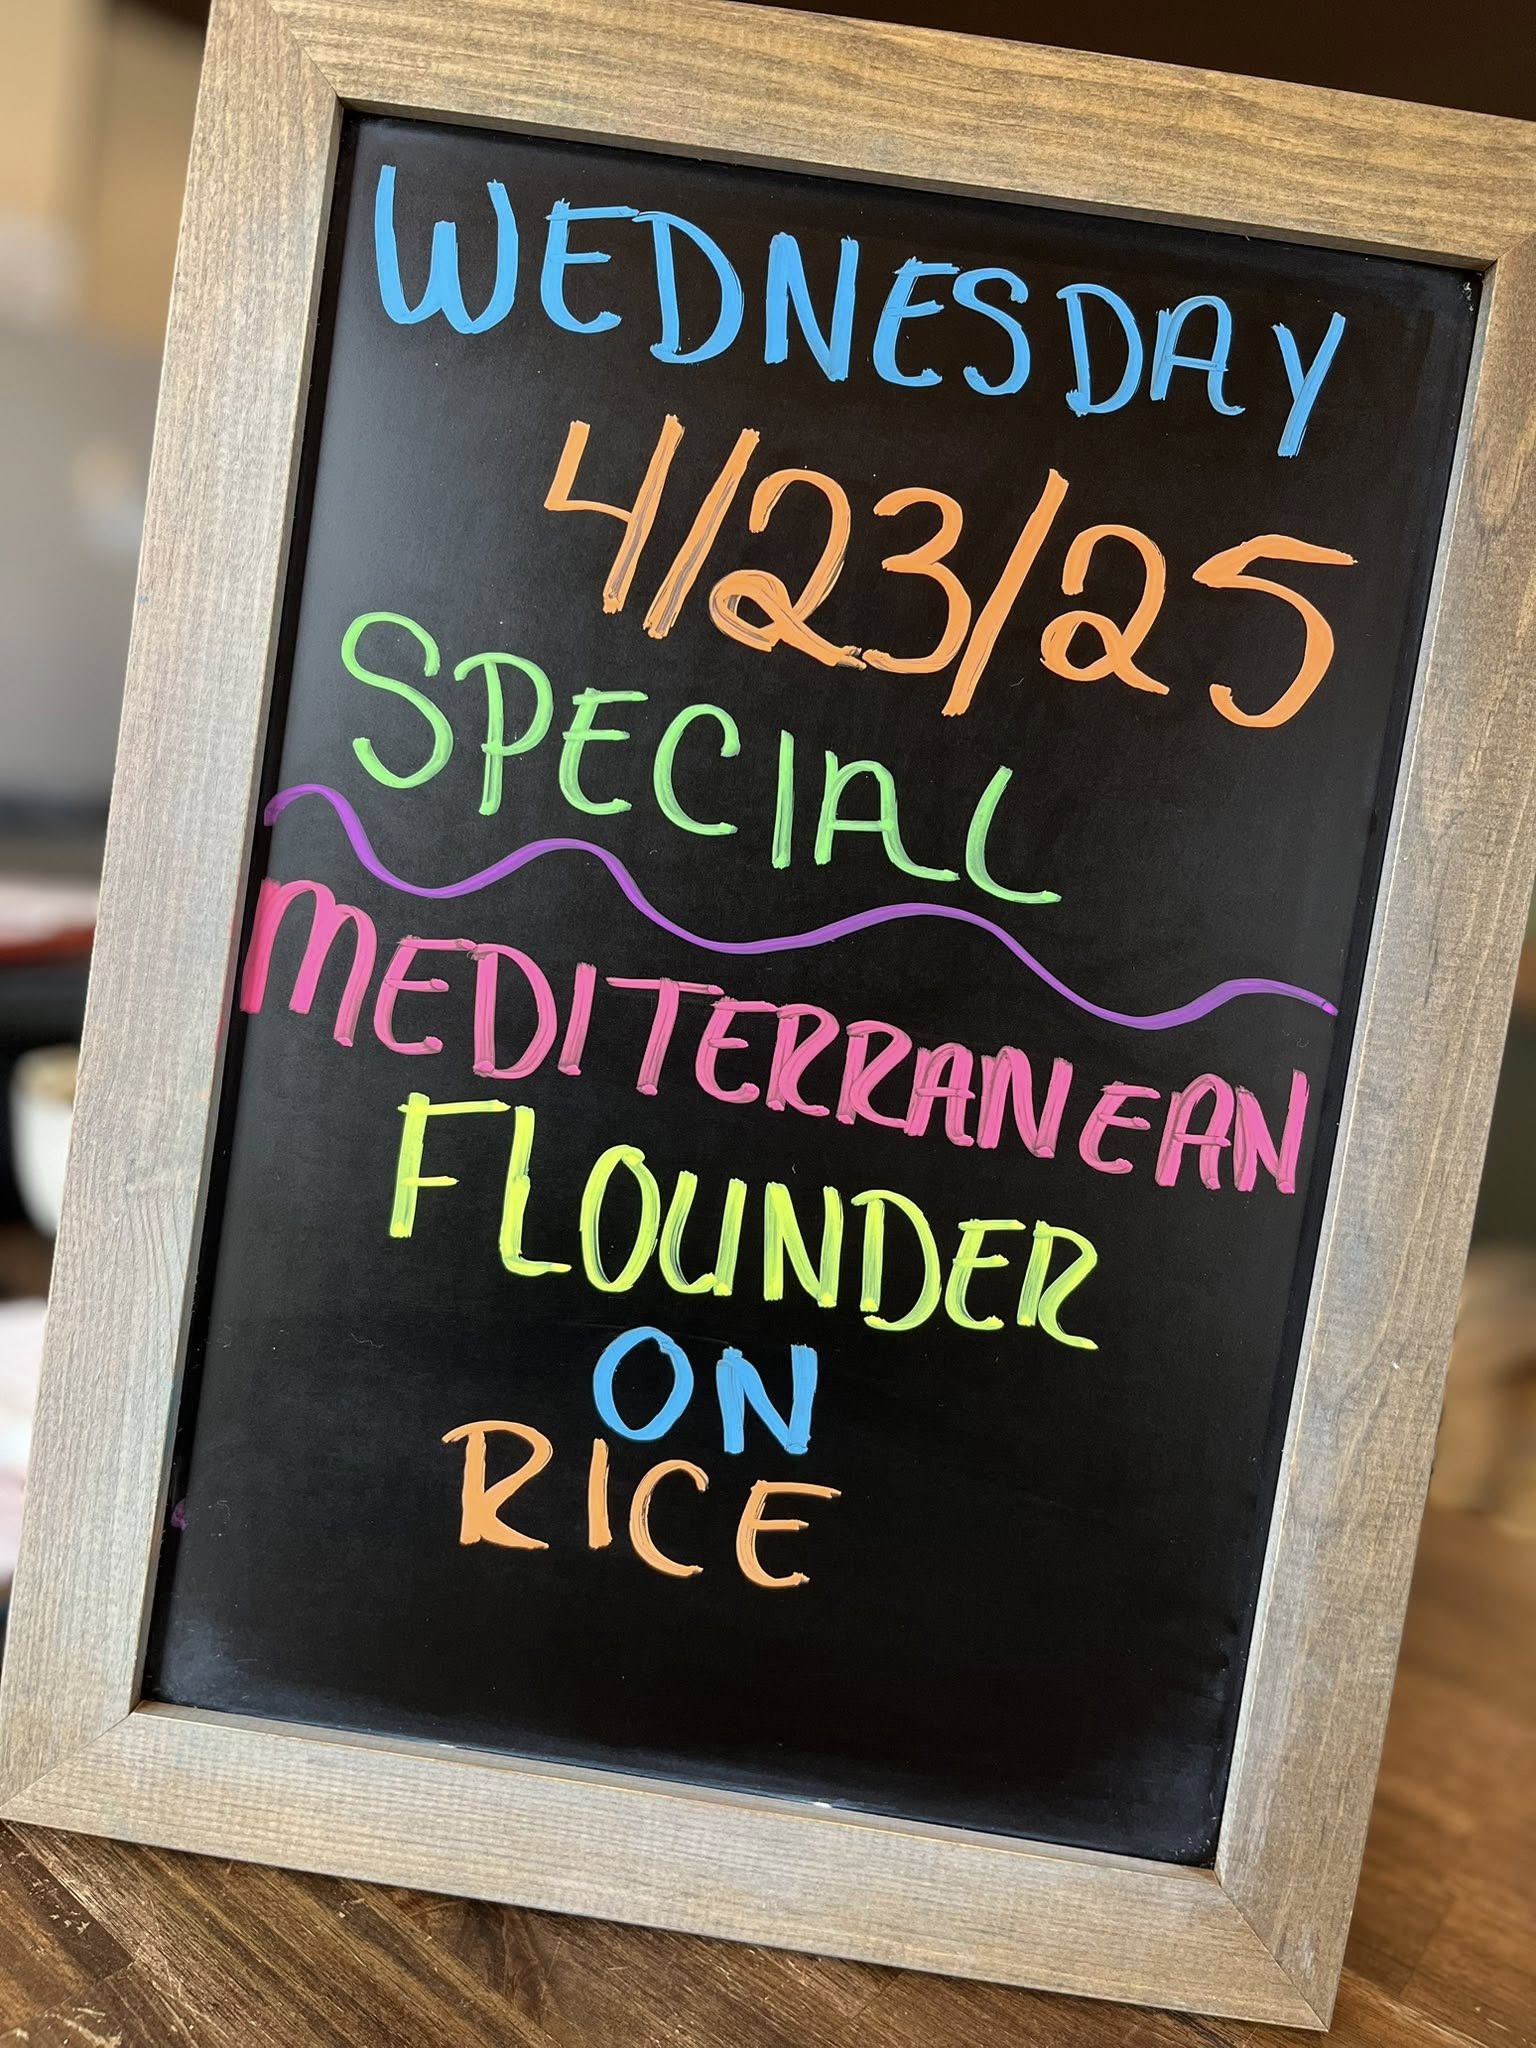 WEDNESDAY
4/23/25
SPECIAL
MEDITERRANEAN
FLOUNDER
ON
RICE